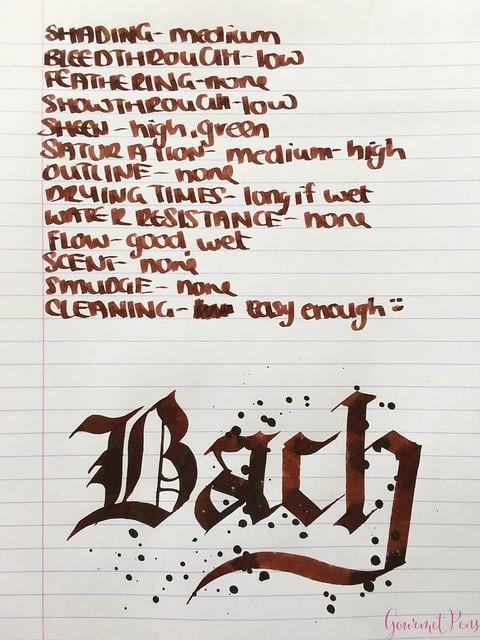 SHADING- medium
BLEEDTHROUGH- low
FEATHERING-none
SHOWTHROUGH-low
SHEEN - high, green
SATURATION - medium-high
OUTLINE- none
DRYING TIMES- long if wet
WATER RESISTANCE- none
FLOW- good, wet
SCENT- none
SMUDGE- none
CLEANING- easy enough :)
Bach
Gourmet Pens